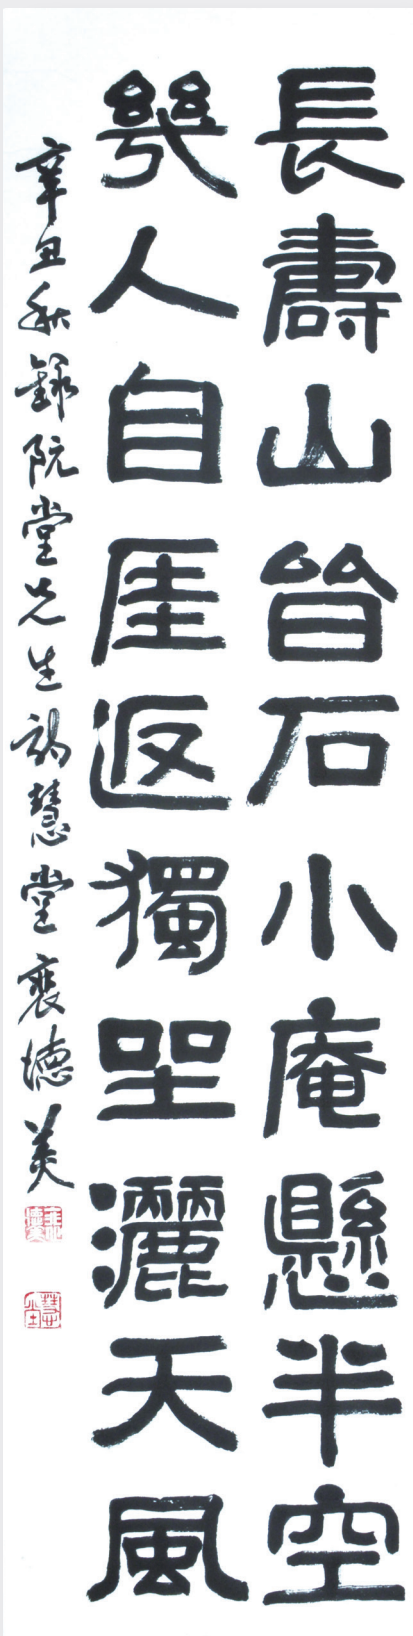 長壽山皆石小庵懸半空
幾人自厓返獨坐灑天風
辛丑秋錄阮堂先生慧堂裵德美